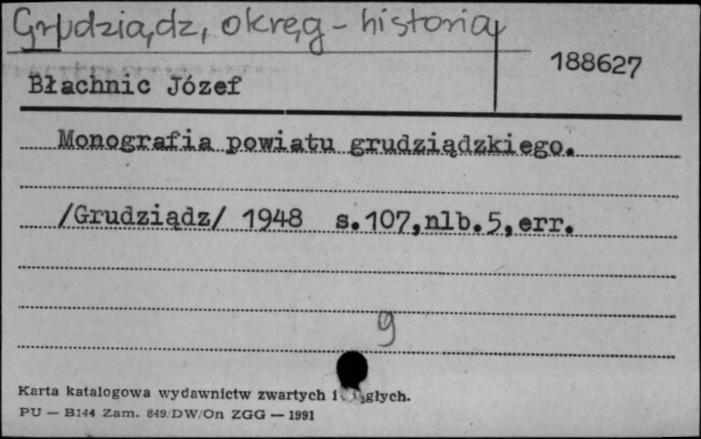 Grudziądz, okręg - historia
188627
Błachnic Józef
Monografia powiatu grudziądzkiego.
/Grudziądz/ 1948 s.107,nlb.5,err.
9
Karta katalogowa wydawnictw zwartych i
PU — B144 Zam. 849/DW/On ZGG — 1991